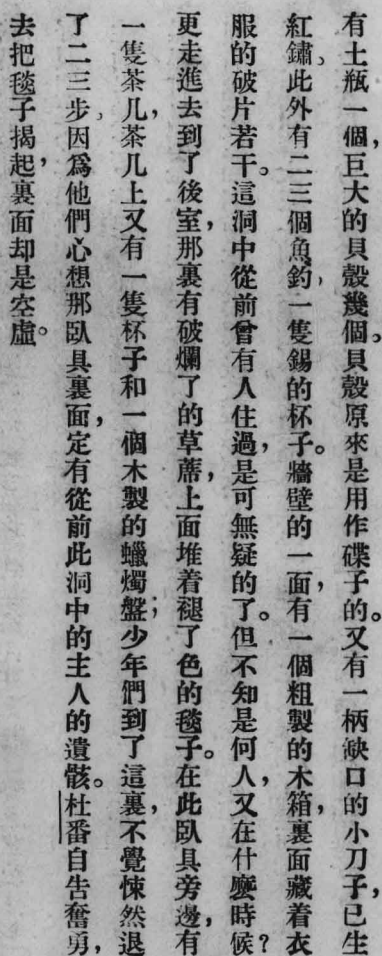 有土瓶一個，巨大的貝殼幾個。貝殼原來是用作碟子的。又有一柄缺口的小刀子，已生
紅鏽、此外有二三個魚釣，一隻錫的杯子。牆壁的一面，有一個粗製的木箱，裏面藏着衣
服的破片若干。這洞中從前曾有人住過，是可無疑的了。但不知是何人，又在什麼時候？
更走進去到了後室，那裏有破爛了的草蓆，上面堆着褪了色的毯子。在此臥具旁邊，有
一隻茶几，茶几上又有一隻杯子和一個木製的蠟燭盤；少年們到了這裏，不覺悚然退
了二三步，因爲他們心想那臥具裏面，定有從前此洞中的主人的遺骸。杜番自告奮勇，
去把毯子揭起，裏面却是空虛。